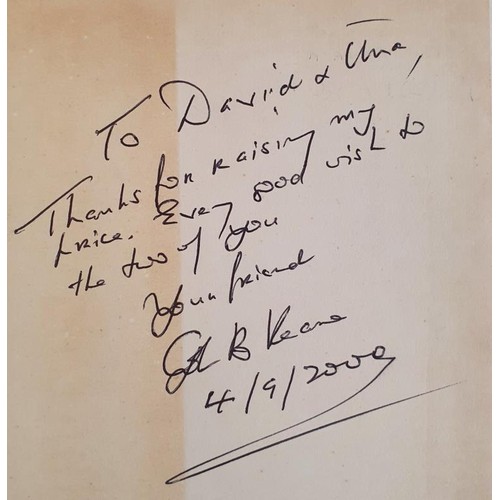 To David & Una,
Thanks for raising my
price. Every good wish to
the two of you
Your friend
B Keane
4/9/2000